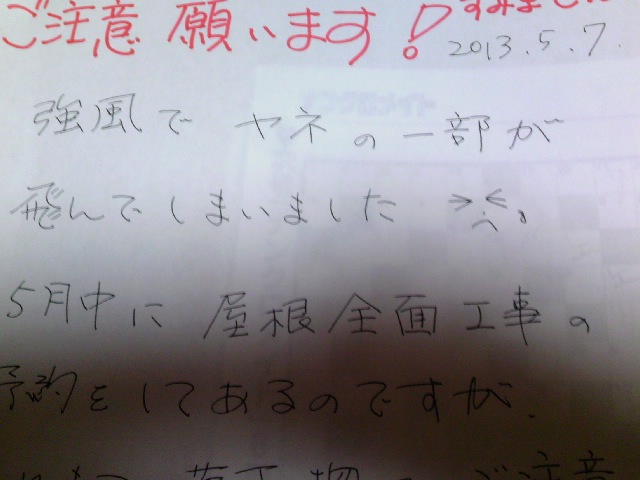 ご注意願います！すみません
2013.5.7.
強風で ヤネの一部が
飛んでしまいました ><。
5月中に 屋根全面工事の
予約をしてあるのですが、
落下物 ご注意